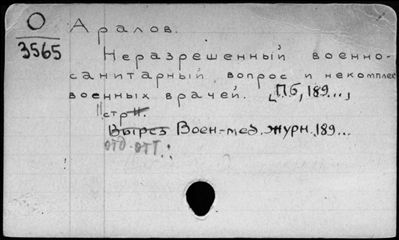 О
3565
Аралов.
Неразрешенный военно-
санитарный вопрос и некомплек
военных врачей. [П.б., 189...,
11 стр.
Вырез Воен-мед. журн., 189...
отд. отт.: